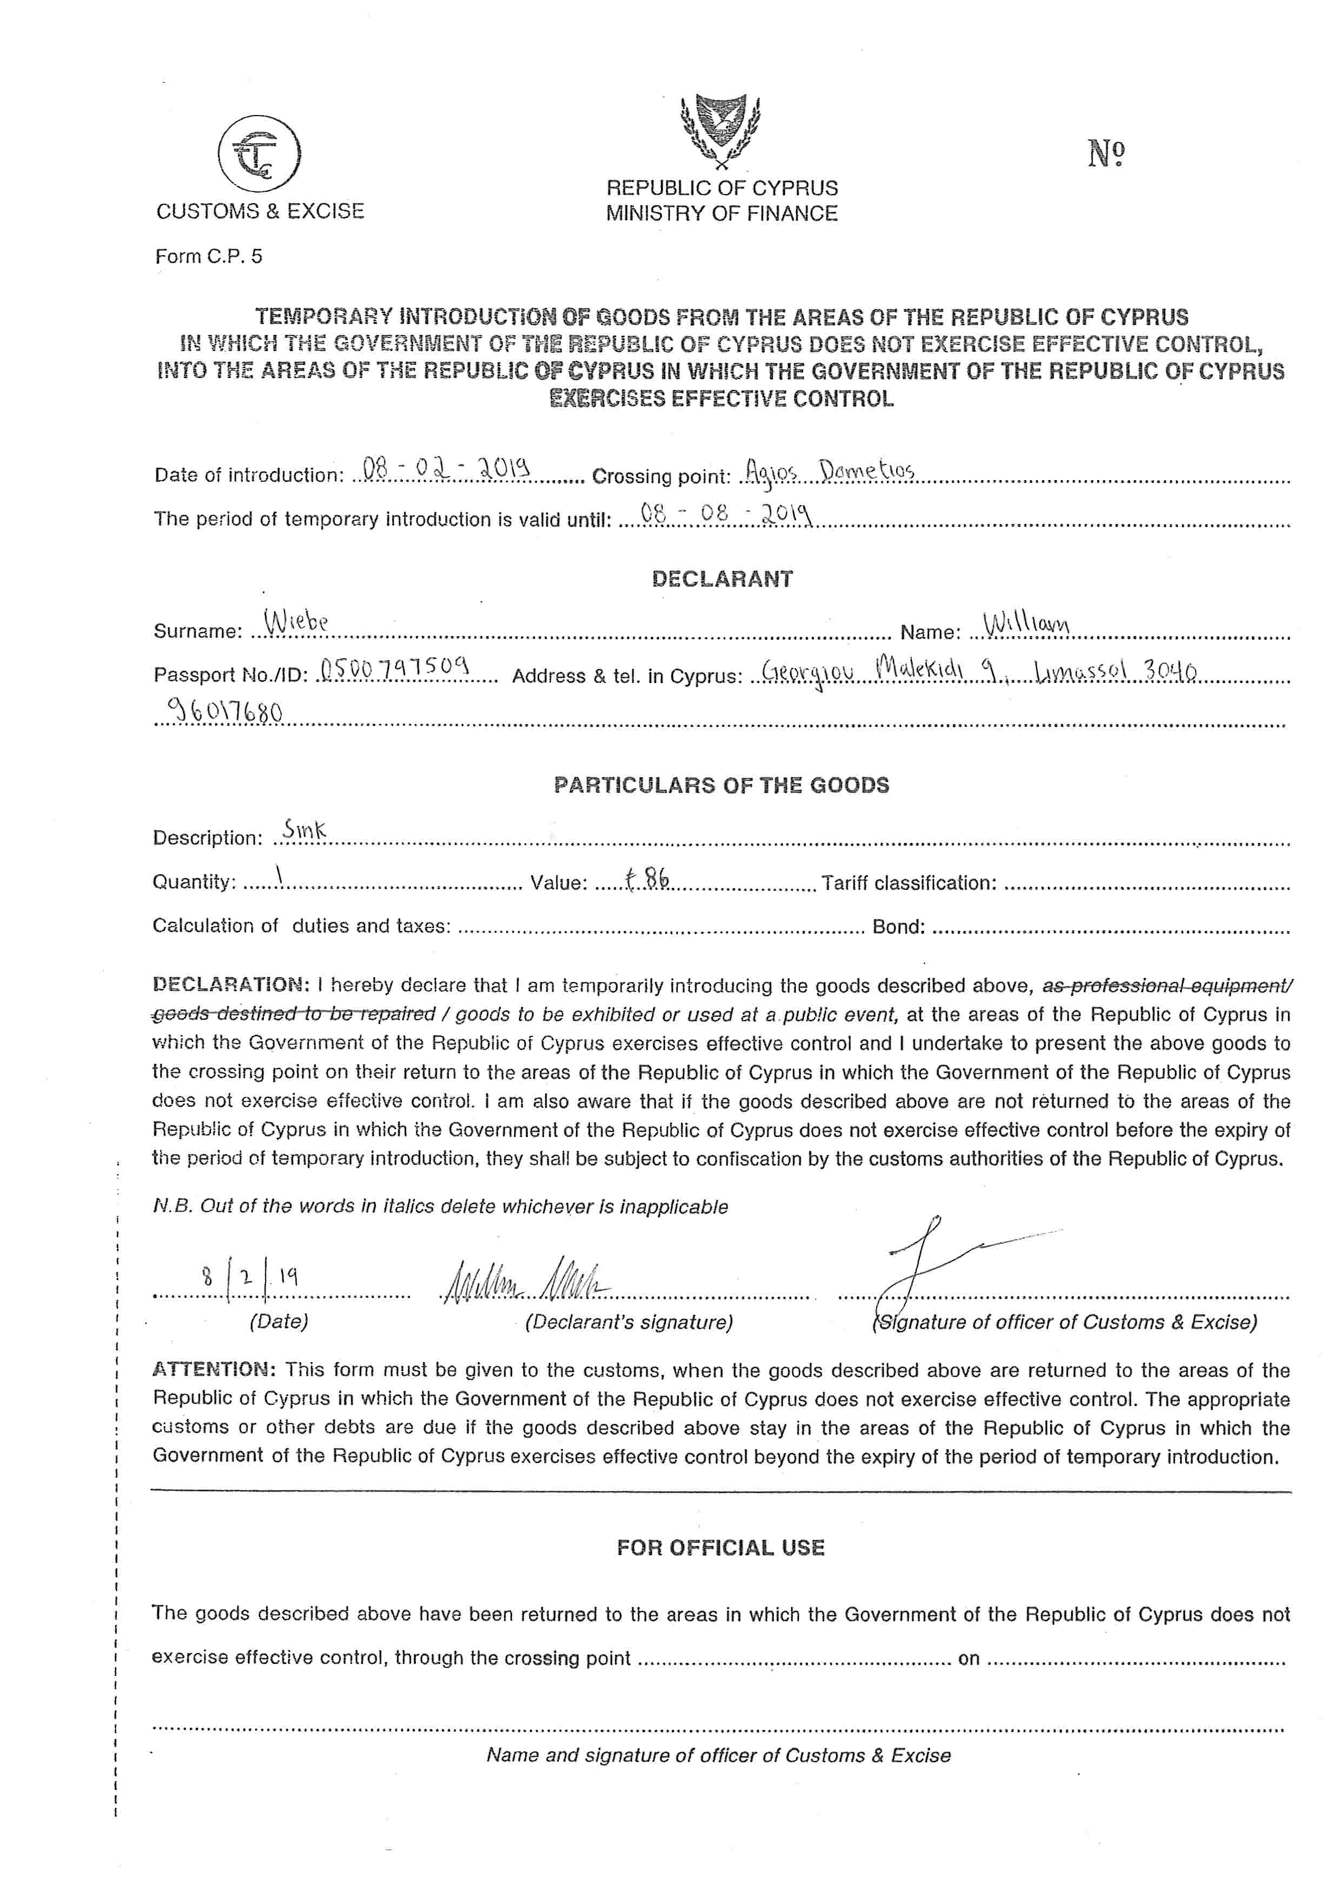 CUSTOMS & EXCISE
REPUBLIC OF CYPRUS
MINISTRY OF FINANCE
Nº
Form C.P. 5
TEMPORARY INTRODUCTION OF GOODS FROM THE AREAS OF THE REPUBLIC OF CYPRUS
IN WHICH THE GOVERNMENT OF THE REPUBLIC OF CYPRUS DOES NOT EXERCISE EFFECTIVE CONTROL,
INTO THE AREAS OF THE REPUBLIC OF CYPRUS IN WHICH THE GOVERNMENT OF THE REPUBLIC OF CYPRUS
EXERCISES EFFECTIVE CONTROL
Date of introduction: 08 - 02 - 2019 Crossing point: Agios Dometios
The period of temporary introduction is valid until: 08 - 08 - 2019
DECLARANT
Surname: Wiebe Name: William
Passport No./ID: 0500797509 Address & tel. in Cyprus: Georgiou Malekidi 9, Limassol 3040
96017680
PARTICULARS OF THE GOODS
Description: Sink
Quantity: 1 Value: €86 Tariff classification:
Calculation of duties and taxes: Bond:
DECLARATION: I hereby declare that I am temporarily introducing the goods described above, as professional equipment/
goods destined to be repaired / goods to be exhibited or used at a public event, at the areas of the Republic of Cyprus in
which the Government of the Republic of Cyprus exercises effective control and I undertake to present the above goods to
the crossing point on their return to the areas of the Republic of Cyprus in which the Government of the Republic of Cyprus
does not exercise effective control. I am also aware that if the goods described above are not returned to the areas of the
Republic of Cyprus in which the Government of the Republic of Cyprus does not exercise effective control before the expiry of
the period of temporary introduction, they shall be subject to confiscation by the customs authorities of the Republic of Cyprus.
N.B. Out of the words in italics delete whichever is inapplicable
8/2/19
(Date) (Declarant's signature) (Signature of officer of Customs & Excise)
ATTENTION: This form must be given to the customs, when the goods described above are returned to the areas of the
Republic of Cyprus in which the Government of the Republic of Cyprus does not exercise effective control. The appropriate
customs or other debts are due if the goods described above stay in the areas of the Republic of Cyprus in which the
Government of the Republic of Cyprus exercises effective control beyond the expiry of the period of temporary introduction.
FOR OFFICIAL USE
The goods described above have been returned to the areas in which the Government of the Republic of Cyprus does not
exercise effective control, through the crossing point on
Name and signature of officer of Customs & Excise